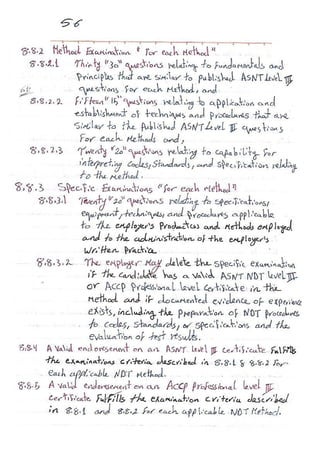 56
8.8.2 Method Examination "For each Method"
8.8.2.1 Thirty "30" questions relating to Fundamentals and
Principles that are similar to published ASNT Level III
questions For each Method, and
8.8.2.2 FiFteen "15" questions relating to application and
establishment of techniques and procedures that are
Similar to the Published ASNT Level III questions
For each Methods and,
8.8.2.3 Twenty "20" questions relating to capability For
interpreting Codes, Standards, and Specification relating
to the Method.
8.8.3 Specific Examinations "For each Method"
8.8.3.1 Twenty "20" questions relating to specifications,
equipment, techniques and Procedures applicable
to the employer's Product(s) and Methods employed
and to the administration of the employer's
written Practice
8.8.3.2 The employer May delete the specific examination
if the candidate has a valid ASNT NDT level III
or ACCP Professional level Certificate in the
Method and if documented evidence of experience
exists, including the preparation of NDT procedures
to codes, Standards, or specifications and the
evaluation of test results.
8.8.4 A valid endorsement on an ASNT level III certificate Fulfills
the examinations criteria described in 8.8.1 & 8.8.2 For
each applicable NDT Method.
8.8.5 A valid endorsement on an ACCP professional level III
Certificate Fulfills the examination criteria described
in 8.8.1 and 8.8.2 For each applicable NDT Method.